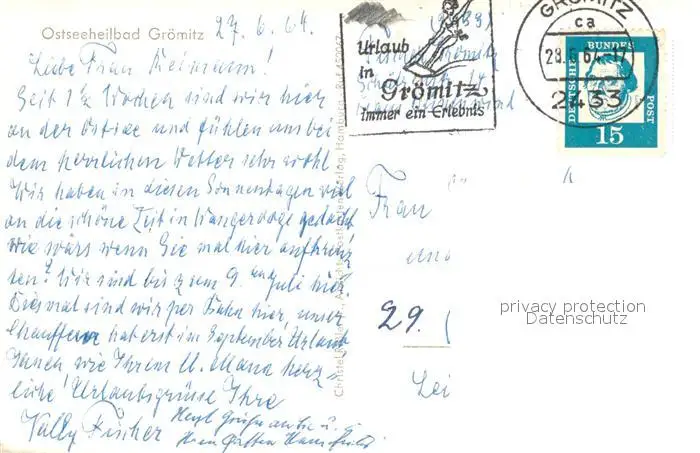 Ostseeheilbad Grömitz 27.6.64.
Liebe Frau Reimann!
Seit 1½ Wochen sind wir hier
an der Ostsee und fühlen uns bei
dem herrlichen Wetter sehr wohl
Wir haben in diesen Sonnentagen viel
an die schöne Zeit in Wangerooge gedacht
wie wärs wenn Sie mal hier aufkreuz-
ten? Wir sind bis zum 9. Juli hier.
Diesmal sind wir per Bahn hier, unser
Chauffeur hat erst im September Urlaub
Ihnen wie Ihrem Mann herz-
liche Urlaubsgrüsse Ihre
Vally Fischer
Herzl Grüße an Sie u.
Ihren Gatten
Urlaub
in
Grömitz
immer ein Erlebnis
GRÖMITZ
ca
28.6.64-17
2433
DEUTSCHE BUNDESPOST
15
Frau
29.
privacy protection
Datenschutz